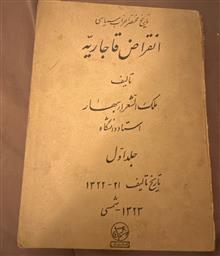 تاریخ مختصر احزاب سیاسی
انقراض قاجاریه
تألیف
ملک الشعراء بهار
استاد دانشگاه
جلد اول
تاریخ تألیف ۲۱-۱۳۲۲
۱۳۲۳ - شمسی